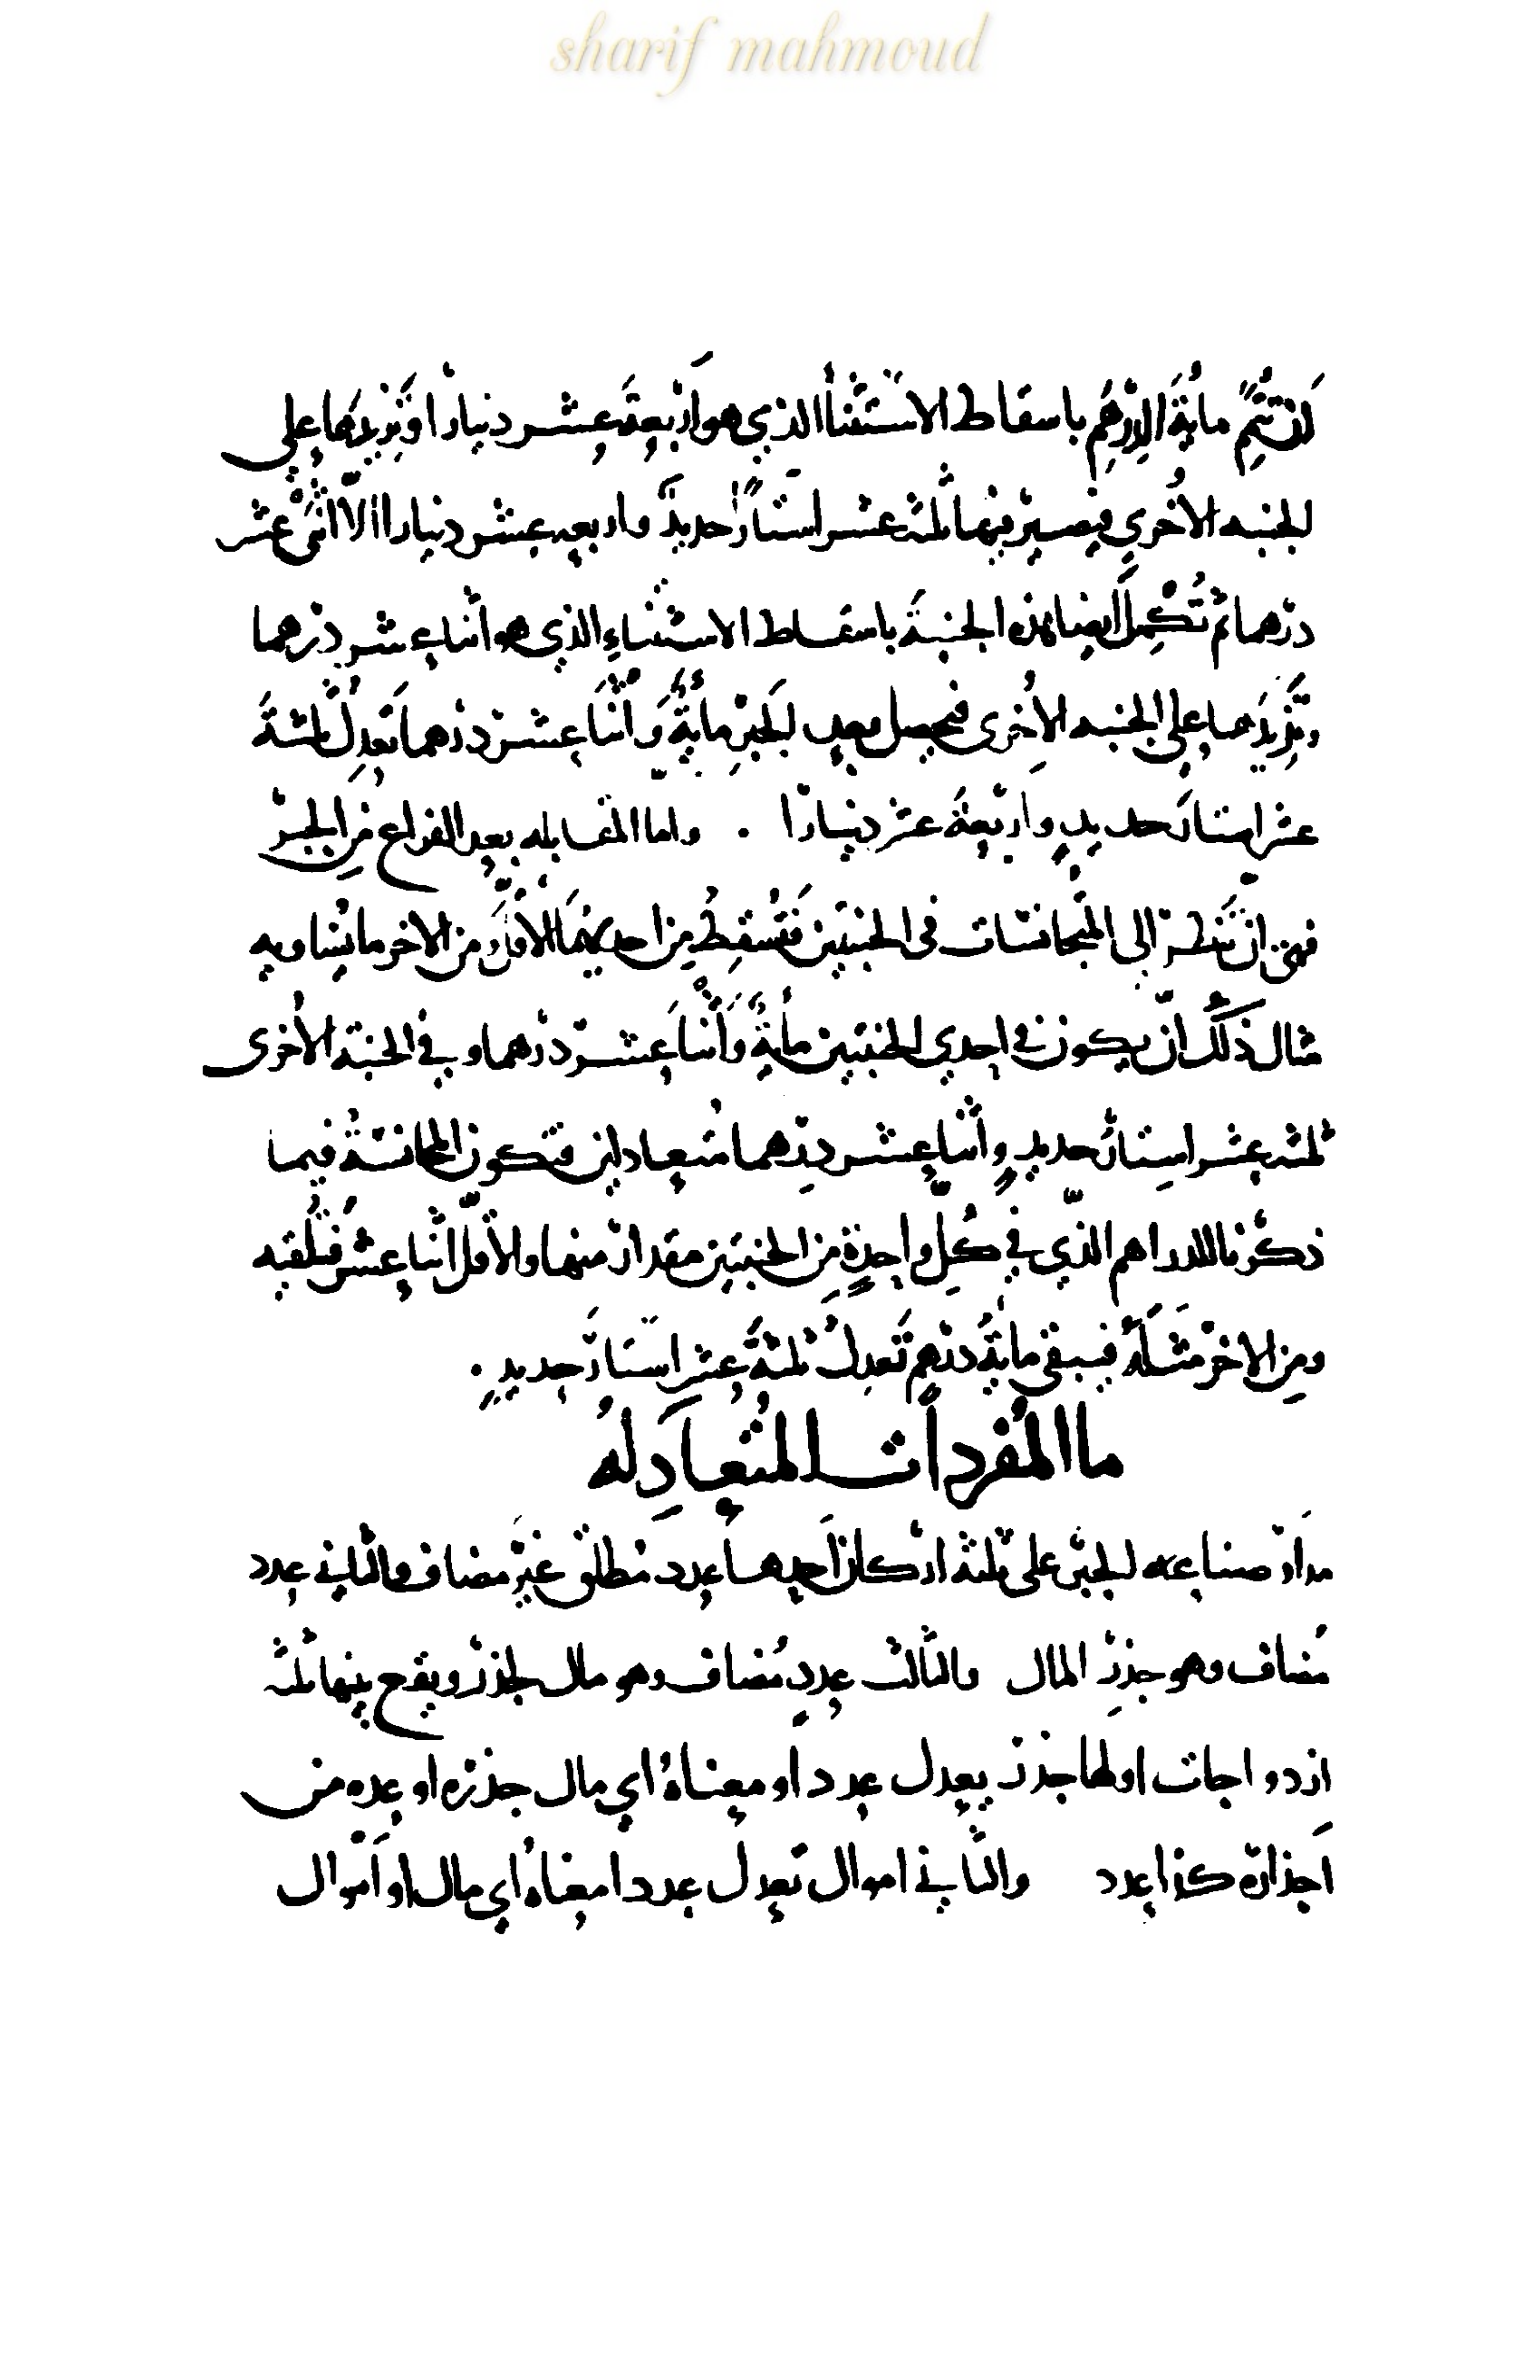 sharif mahmoud
اَن تُتِمَّ مايةَ الدِرْهَم باسقاط الاستثنا الذي هو اَرْبعةَ عشر دينارا وتزيدَها على
الجنبه الاُخرى فيصيرُ فيها ثلثه عشر استارًا حديدٍ واربعه عشر دينارا الّا اثنى عشر
درهما ثم تُكْمِلَ ايضا هذه الجنبةَ باسقاط الاستثناءِ الذي هو اثنا عشر درهما
وتَزِيدَها على الجنبه الاُخرى فيحصل بعد الجبرِ مأيةٌ وَاثْنَا عشر درهما تَعدِلُ ثلثةَ
عشر استارَ حديدٍ واربعةَ عشر دينارًا . واما المقابله بعد الفراغ مِن الجبر
فهى ان تنظر الى المتجانسات فى الجنبتين فَتُسْقِطُ مِن احديهمَا الاقلَّ ومن الاخر مايُساويه
مثال ذلكَ ان يكون فى احدى الجنبتين مأيةٌ وَاثْنا عشر درهما وفى الجنبة الاُخرى
ثلثه عشر استارَ حديدٍ واثنا عشر درهما مُتعادلين فتكون المجانسَةُ فيما
ذكرْنا للدراهم الذي فى كُلِّ واحدةٍ مِن الجنبتين مقدار منها والاقلّ اثنا عشر فَنُلْقيه
ومِن الاخر مثلَهُ فيبقى مايةُ درهم تَعدِلُ ثلثةَ عشر استارَ حديدٍ .
ما المُفردَاتُ المُتعادِلهُ
مدَارُ صناعه الجبر على ثلثة اركان اَحدها عدد مُطلق غيْر مضاف والثانى عدد
مُضاف وهو جذرُ المال والثالث عددٍ مُضاف وهو مال الجذر ويقع بينها ثلثة
ازدواجات اولها جذر يعدل عددا ومعناهُ اى مال جذره او عده من
اَجذاره كذا عدد والثانى اموال تعدل عددا معناهُ اى مال او اَموال